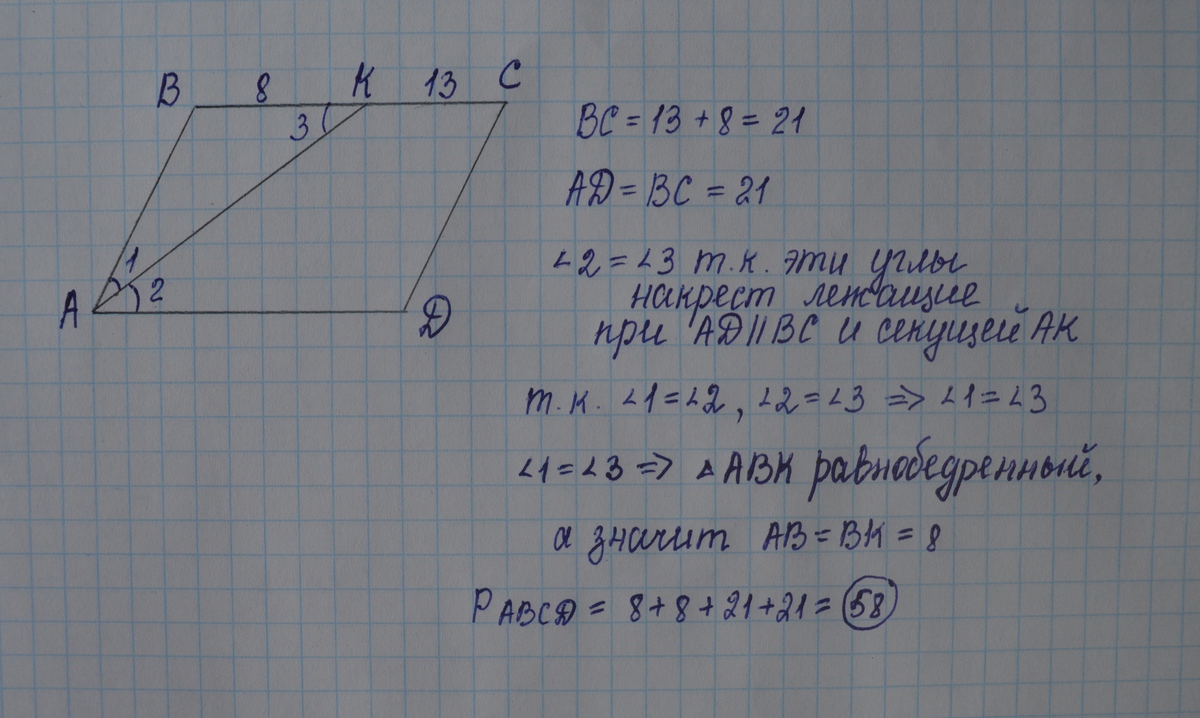 B 8 K 13 C
3
1
2
A
D
BC = 13 + 8 = 21
AD = BC = 21
∠2 = ∠3 т.к. эти углы
накрест лежащие
при AD || BC и секущей AK
т.к. ∠1 = ∠2, ∠2 = ∠3 => ∠1 = ∠3
∠1 = ∠3 => △ABK равнобедренный,
а значит AB = BK = 8
P ABCD = 8 + 8 + 21 + 21 = 58